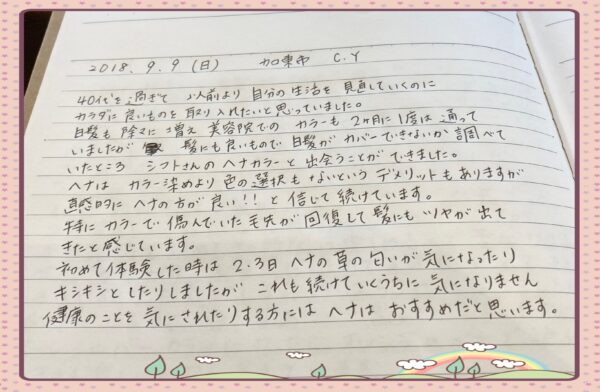 2018.9.9(日) 加東市 C.Y
40代を過ぎて 以前より 自分の生活を 見直していくのに
カラダに良いものを 取り入れたいと思っていました。
白髪も 除々に 増え 美容院での カラーも 2ヶ月に1度は 通って
いましたが 髪にも良いもので 白髪が カバーできないか 調べて
いたところ シフトさんの ヘナカラーと 出会うことが できました。
ヘナは カラー染めより 色の選択も ないという デメリットも ありますが
直感的に ヘナの方が 良い!! と 信じて 続けています。
特に カラーで 傷んでいた 毛先が 回復して 髪にも ツヤが 出て
きたと 感じています。
初めて 体験した時は 2.3日 ヘナの草の匂いが 気になったり
キシキシと したりしましたが これも 続けていくうちに 気になりません
健康のことを 気にされたりする方には ヘナは おすすめだと 思います。